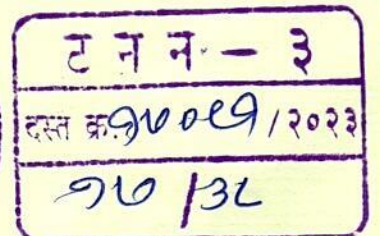 ट न न - ३
दस्त क्र. १७०९१/२०२३
१७/३८